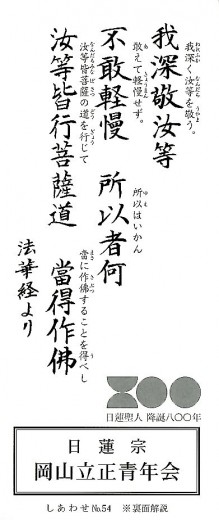 我深敬汝等
我深く汝等を敬う。
不敢軽慢 所以者何
敢えて軽慢せず。 所以はいかん
汝等皆行菩薩道 當得作佛
汝等皆菩薩の道を行じて 當に作佛することを得べし
法華経より
日蓮聖人 降誕八〇〇年
日蓮宗
岡山立正青年会
しあわせ No.54 ※裏面解説